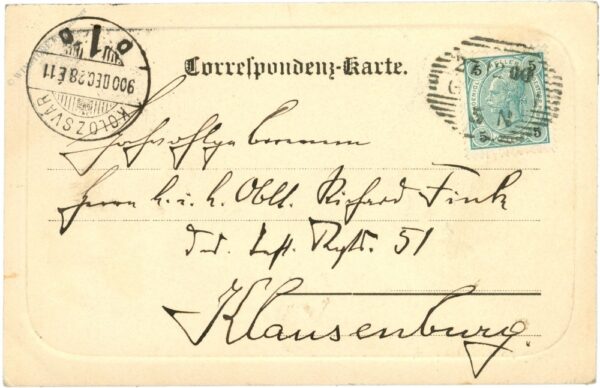 Correspondenz-Karte.
KOLOZSVÁR
900 DEC 28 É 11
D 1 D
5 5
5 5
Hochwohlgeboren
Herrn k. u. k. Oblt. Richard Fink
d. d. Inft. Rgts. 51
Klausenburg.